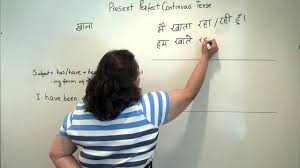 Present Perfect Continuous Tense
खाना
मैं खाता रहा / रही हूँ।
हम खाते रहे
Subject + has / have +
- ing form of
I have been